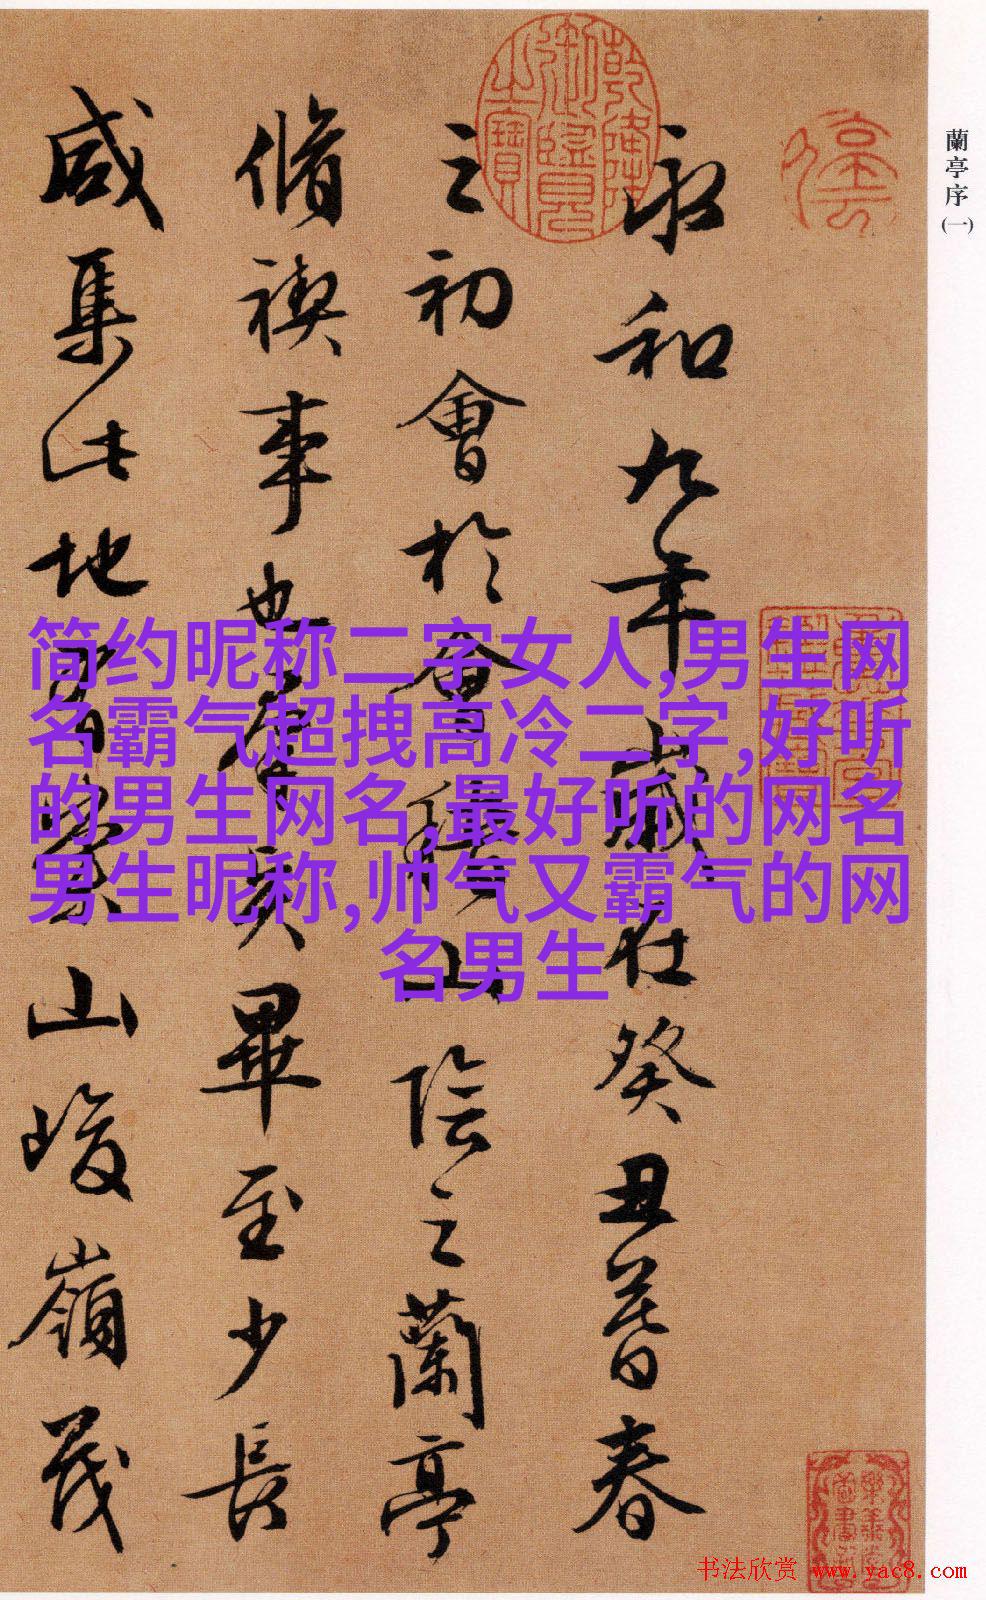 蘭亭序(一)
永和九年歲在癸丑暮春
之初會於會稽山陰之蘭亭
脩禊事也羣賢畢至少長
咸集此地有崇山峻領茂
乾隆御覽之寶
简约昵称二字女人,男生网
名霸气超拽高冷二字,好听
的男生网名,最好听的网名
男生昵称,帅气又霸气的网
名男生
书法欣赏 www.yac8.com